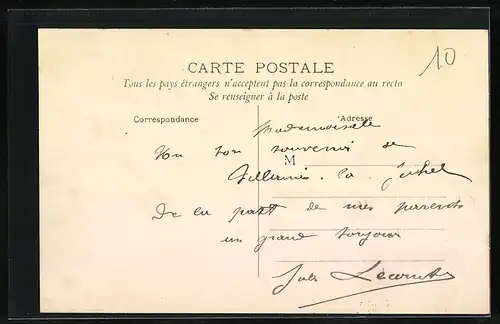 10
CARTE POSTALE
Tous les pays étrangers n'acceptent pas la correspondance au recto
Se renseigner à la poste
Correspondance
Adresse
Mademoiselle
bon souvenir de
M
la
De la part de mes parents
un grand bonjour
Lecomte